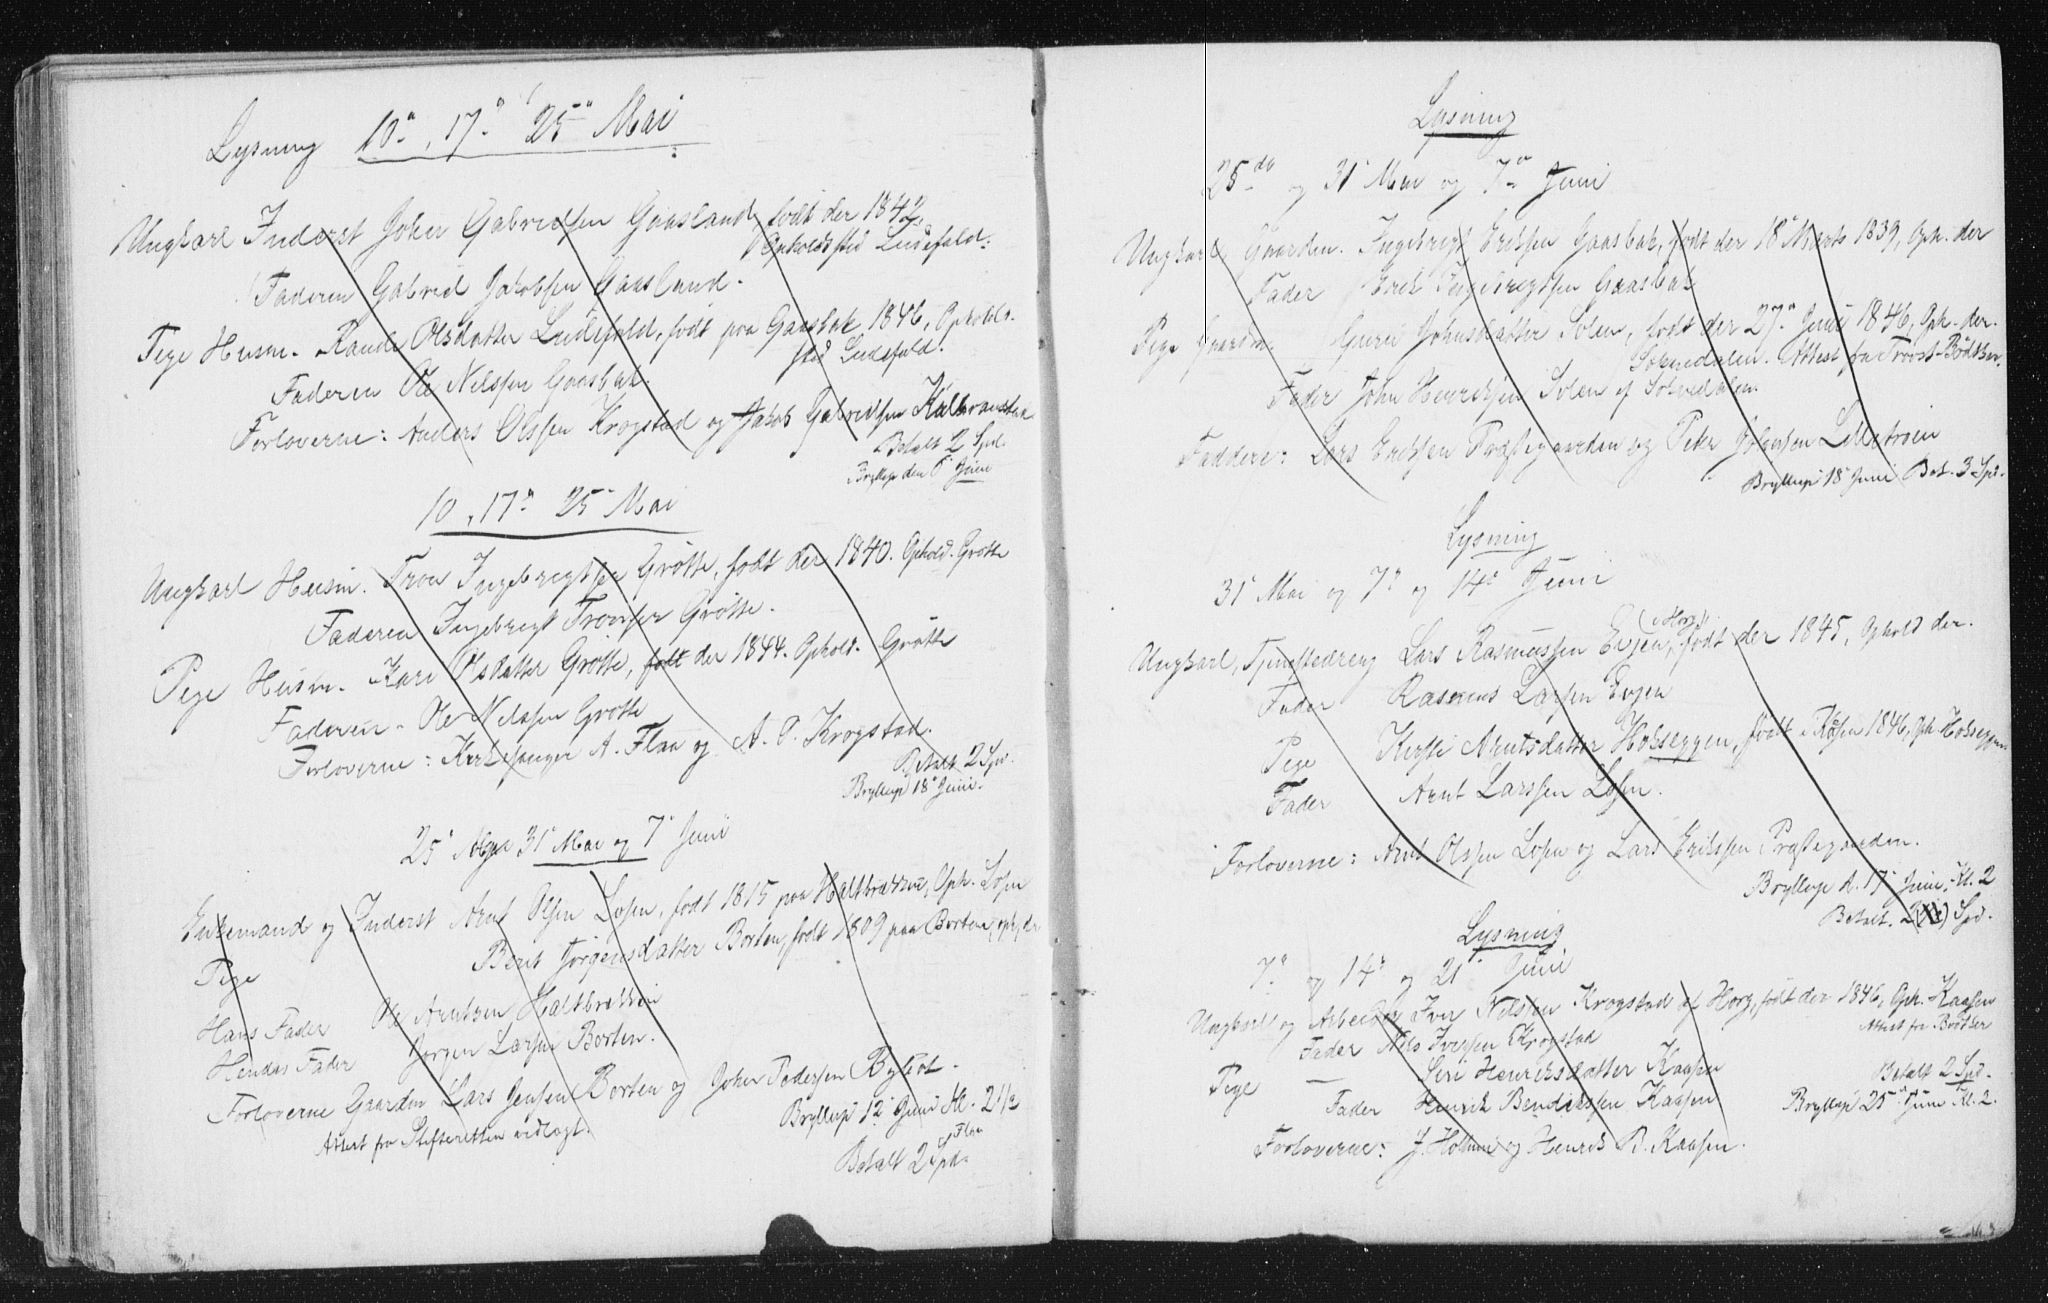 Lysning 10de, 17de 25de Mai
Ungkarl Inderst John Gabrielsen Gaasland, født der 1842,
Opholdssted Ludefald:
Faderen Gabriel Jakobsen Gaasland.
Pige Husm. Randi Olsdatter Ludefald, født paa Gaasbak, 1846, Opholds-
sted Ludefald.
Faderen Ole Nilssen Gaasbak.
Forloverne: Anders Olssen Krogstad og Jakob Gabrielsen
Betalt 2 Spd.
Bryllup den Juni
10, 17de 25 Mai
Ungkarl Husm. Tron Ingebrigtsen Grøtte, født der 1840. Ophold. Grøtte
Faderen Ingebrigt Tronsen Grøtte.
Pige Husm. Kari Olsdatter Grøtte, født der 1844. Ophold. Grøtte
Faderen - Ole Nilssen Grøtte
Forloverne: Kirkesanger A. Flaa og A. O. Krogstad.
Betalt 2 Spd.
Bryllup 18de Juni.
25de 31de Mai og 7de Juni
Enkemand og Inderst Arnt Olsen Losen, født 1815 paa Haltbrækken, Oph. Losen
Pige Berit Jørgensdatter Borten, født 1809 paa Borten, oph. der
Hans Fader Ole Arntsen Haltbrækken
Hendes Fader Jørgen Larsen Borten.
Forloverne Gaardm Lars Jensen Borten og John Pedersen Bykøt.
Attest fra Skifteretten vidlagt.
Bryllup 12te Juni Kl. 2 1/2
Flaa
Betalt 2 Spd.
Lysning
25de og 31 Mai og 7de Juni
Ungkarl, Gaarden. Ingebrigt Eriksen Gaasbak, født der 18de Marts 1839, Oph. der
Fader Erik Ingebrigtsen Gaasbak
Pige Gaardm. Guru Johnsdatter Solem, født der 27de Juni 1846, Oph. der.
Soknedalen. Attest fra Provst Bødtker.
Fader John Henriksen Solem af Soknedalen.
Faddere: Lars Eriksen Præstegaarden og Peter Johnsen Lilletrøen
Bryllup 18de Juni Bet. 3 Spd.
Lysning
31de Mai og 7de og 14de Juni
(i Horg)
Ungkarl, Tjenestedreng Lars Rasmussen Evjen, født der 1845, Ophold der.
Fader Rasmus Larsen Evjen
Pige Kirsti Arntsdatter Hokseggen, født i Røsen 1846, Oph. Hokseggen
Fader Arnt Larssen Losen.
Forloverne: Arnt Olssen Losen og Lars Erikssen Præstegaarden.
Bryllup d. 17de Juni, Kl. 2
Betalt. 2 Spd.
Lysning
7de og 14de og 21de Juni
Ungkarl og Arbeider Iver Nilssen Krogstad af Horg, født der 1846, Oph. Kaasen
Attest fra Bødtker
Fader Nils Iversen Krogstad
Pige — Siri Henriksdatter Kaasen
Betalt 2 Spd.
Fader Henrik Bendikssen Kaasen
Bryllup 25de Juni Kl. 2.
Forloverne: J. Holtmo og Henrik B. Kaasen.